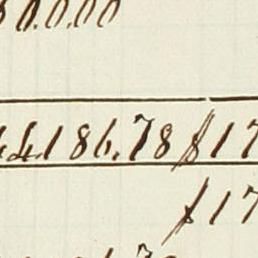 0.0.00
44.186.78 $17
$17